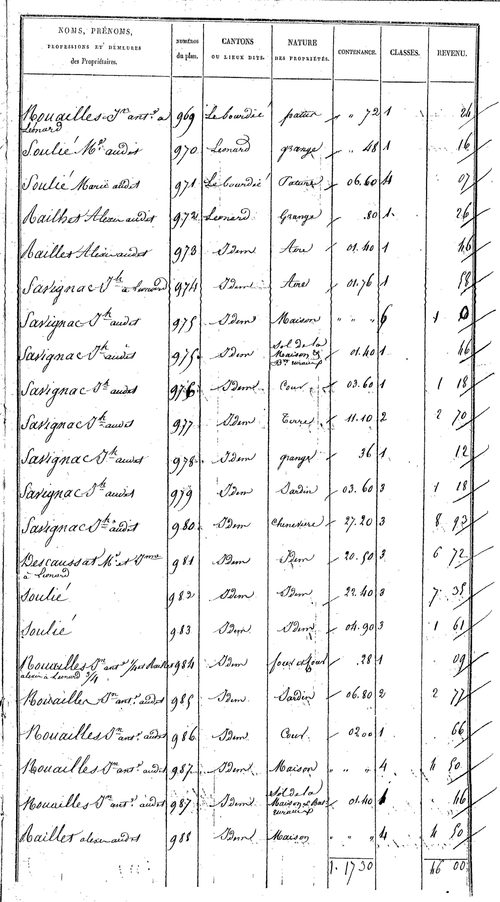 NOMS, PRÉNOMS, PROFESSIONS ET DEMEURES des Propriétaires. NUMÉROS du plan. CANTONS OU LIEUX DITS. NATURE DES PROPRIÉTÉS. CONTENANCE. CLASSES. REVENU.
Rouailles Jn antne à Léonard 969 Le bourdié patus " 72 1 24
Soulié Me audit 970 Léonard grange " 48 1 16
Soulié Marie audit 971 Le bourdié Pature 06.60 4 07
Railhet Alexis audit 972 Léonard Grange .80 1 26
Railles Alexis audit 973 Idem Aire 01.40 1 46
Savignac Jh à Léonard 974 Idem Aire 01.76 1 58
Savignac Jh audit 975 Idem Maison " " " 6 1 0
Savignac Jh audit 975 Idem Sol de la Maison & 01.40 1 46
Savignac Jh audit 976 Idem Cour 03.60 1 1 18
Savignac Jh audit 977 Idem Terre 11.10 2 2 70
Savignac Jh audit 978 Idem grange 36 1 12
Savignac Jh audit 979 Idem Jardin 03.60 3 1 18
Savignac Jh audit 980 Idem Cheneviere 27.20 3 8 93
Descaussat Me et à Léonard 981 Idem Idem 20.50 3 6 72
Soulié 982 Idem Idem 22.40 3 7 35
Soulié 983 Idem Idem 04.90 3 1 61
Rouailles Jn antne alexis à Léonard 3/4 984 Idem four et cour .28 1 09
Rouailles Jn antne audit 985 Idem Jardin 06.80 2 2 77
Rouailles Jn antne audit 986 Idem Cour 02.00 1 66
Rouailles Jn antne audit 987 Idem Maison " " " 4 4 50
Rouailles Jn antne audit 987 Idem Sol de la Maison 01.40 1 46
Raillet alexis audit 988 Idem Maison " " " 4 4 50
1.1730 46 00